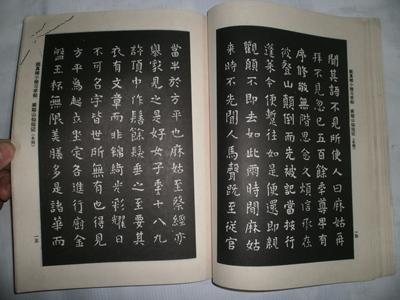 聞其語不見所使人曰麻姑再
拜不見忽已五百餘年尊卑有
序修敬無階思念久煩信承在
彼登山顛倒而先被記當按行
蓬萊今便暫往如是便還即親
觀願不即去如此兩時間麻姑
來時不先聞人馬聲既至從官
一四
當半於方平也麻姑至蔡經亦
舉家見之是好女子年十八九
許頂中作髻餘髮垂之至要其
衣有文章而非錦綺光彩耀日
不可名字皆世所無有也得見
方平為起立坐定各進行廚金
盤玉杯無限美膳多是諸華而
一五